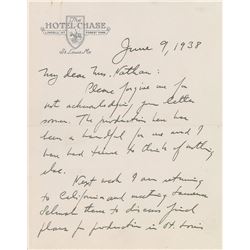 The
HOTEL CHASE
LINDELL AT FOREST PARK
St. Louis Mo
June 9, 1938
My dear Mrs. Nathan:
Please forgive me for
not acknowledging your letter
sooner. The production here has
been a handful for me and I
have had time to think of nothing
else.
Next week I am returning
to California and meeting Laurence
Schwab there to discuss final
plans for production in St. Louis